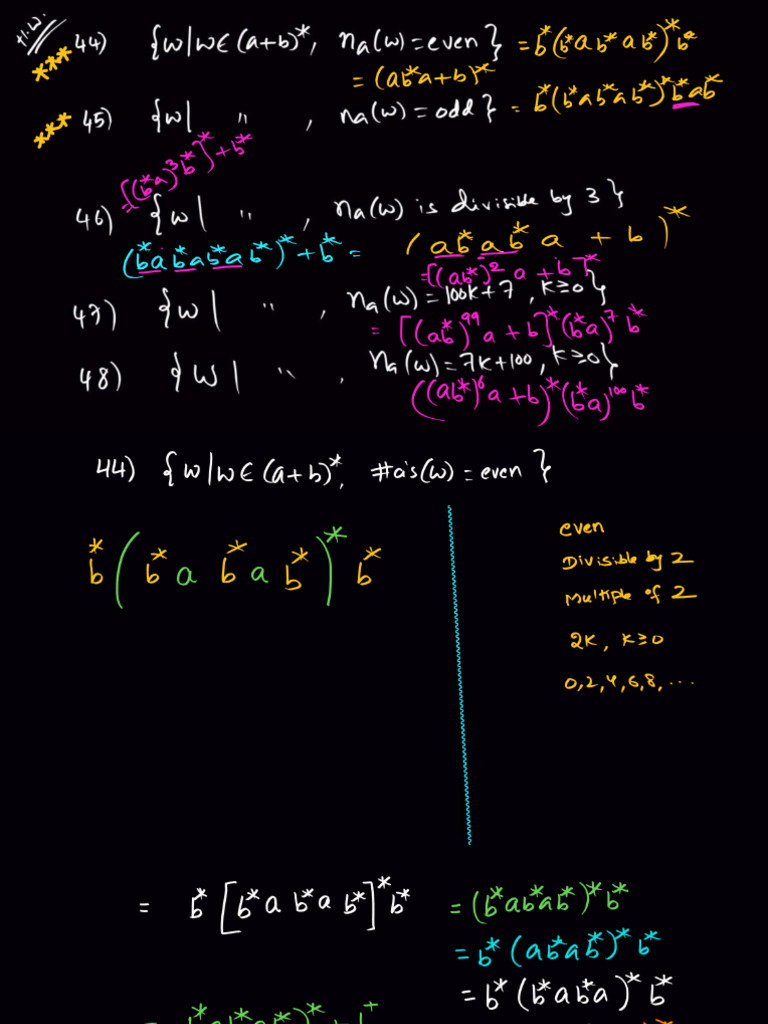 H.W.
*** 44) {w|w∈(a+b)*, na(w)=even} = b*(b*ab*ab*)*b*
= (ab*a+b)*
*** 45) {w| " , na(w)=odd} = b*(b*ab*ab*)*b*ab*
=[(b*a)³b*]*+b*
46) {w| " , na(w) is divisible by 3}
(b*ab*ab*ab*)*+b* = (ab*ab*a + b)*
=[(ab*)²a+b]*
47) {w| " , na(w)=100k+7, k≥0}
= [(ab*)⁹⁹a+b]*(b*a)⁷b*
48) {w| " , na(w)=7k+100, k≥0}
((ab*)⁶a+b)*(b*a)¹⁰⁰b*
44) {w|w∈(a+b)*, #a's(w)=even}
b*(b*ab*ab*)*b*
even
Divisible by 2
Multiple of 2
2k, k≥0
0,2,4,6,8,...
= b*[b*ab*ab*]*b* = (b*ab*ab*)*b*
= b*(ab*ab*)*b*
= b*(b*ab*a)*b*